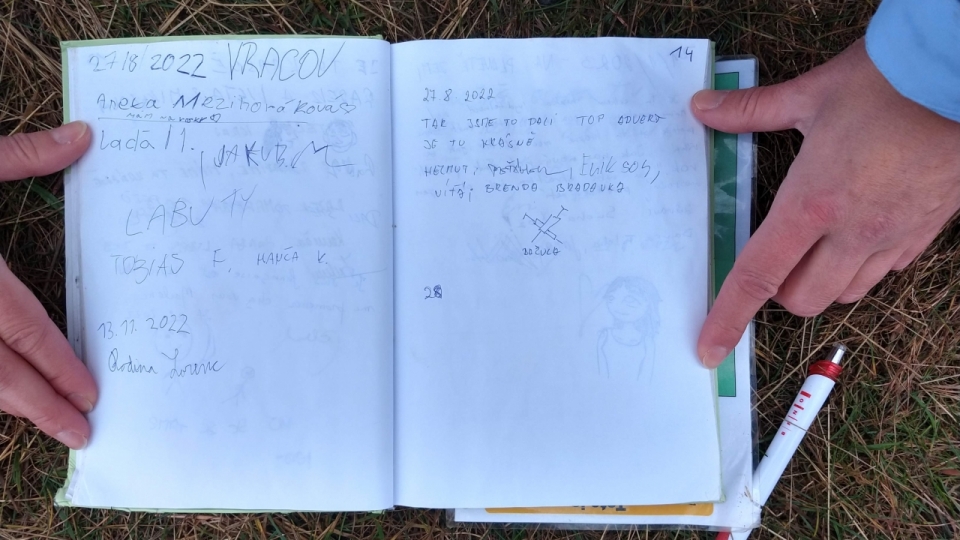 27/8/2022 VRACOV
Aneka Mezihoráková
Laďa M.
JAKUB M
LABUTY
TOBIÁS F. HANČA K.
13.11.2022
Rodina Lorenc
14
27.8.2022
TAK JSME TO DALI TOP ADVENT
JE TU KRÁSNĚ
HELMUT; ERIKSON,
VÍŤA; BRENDA BRADAVKA
28